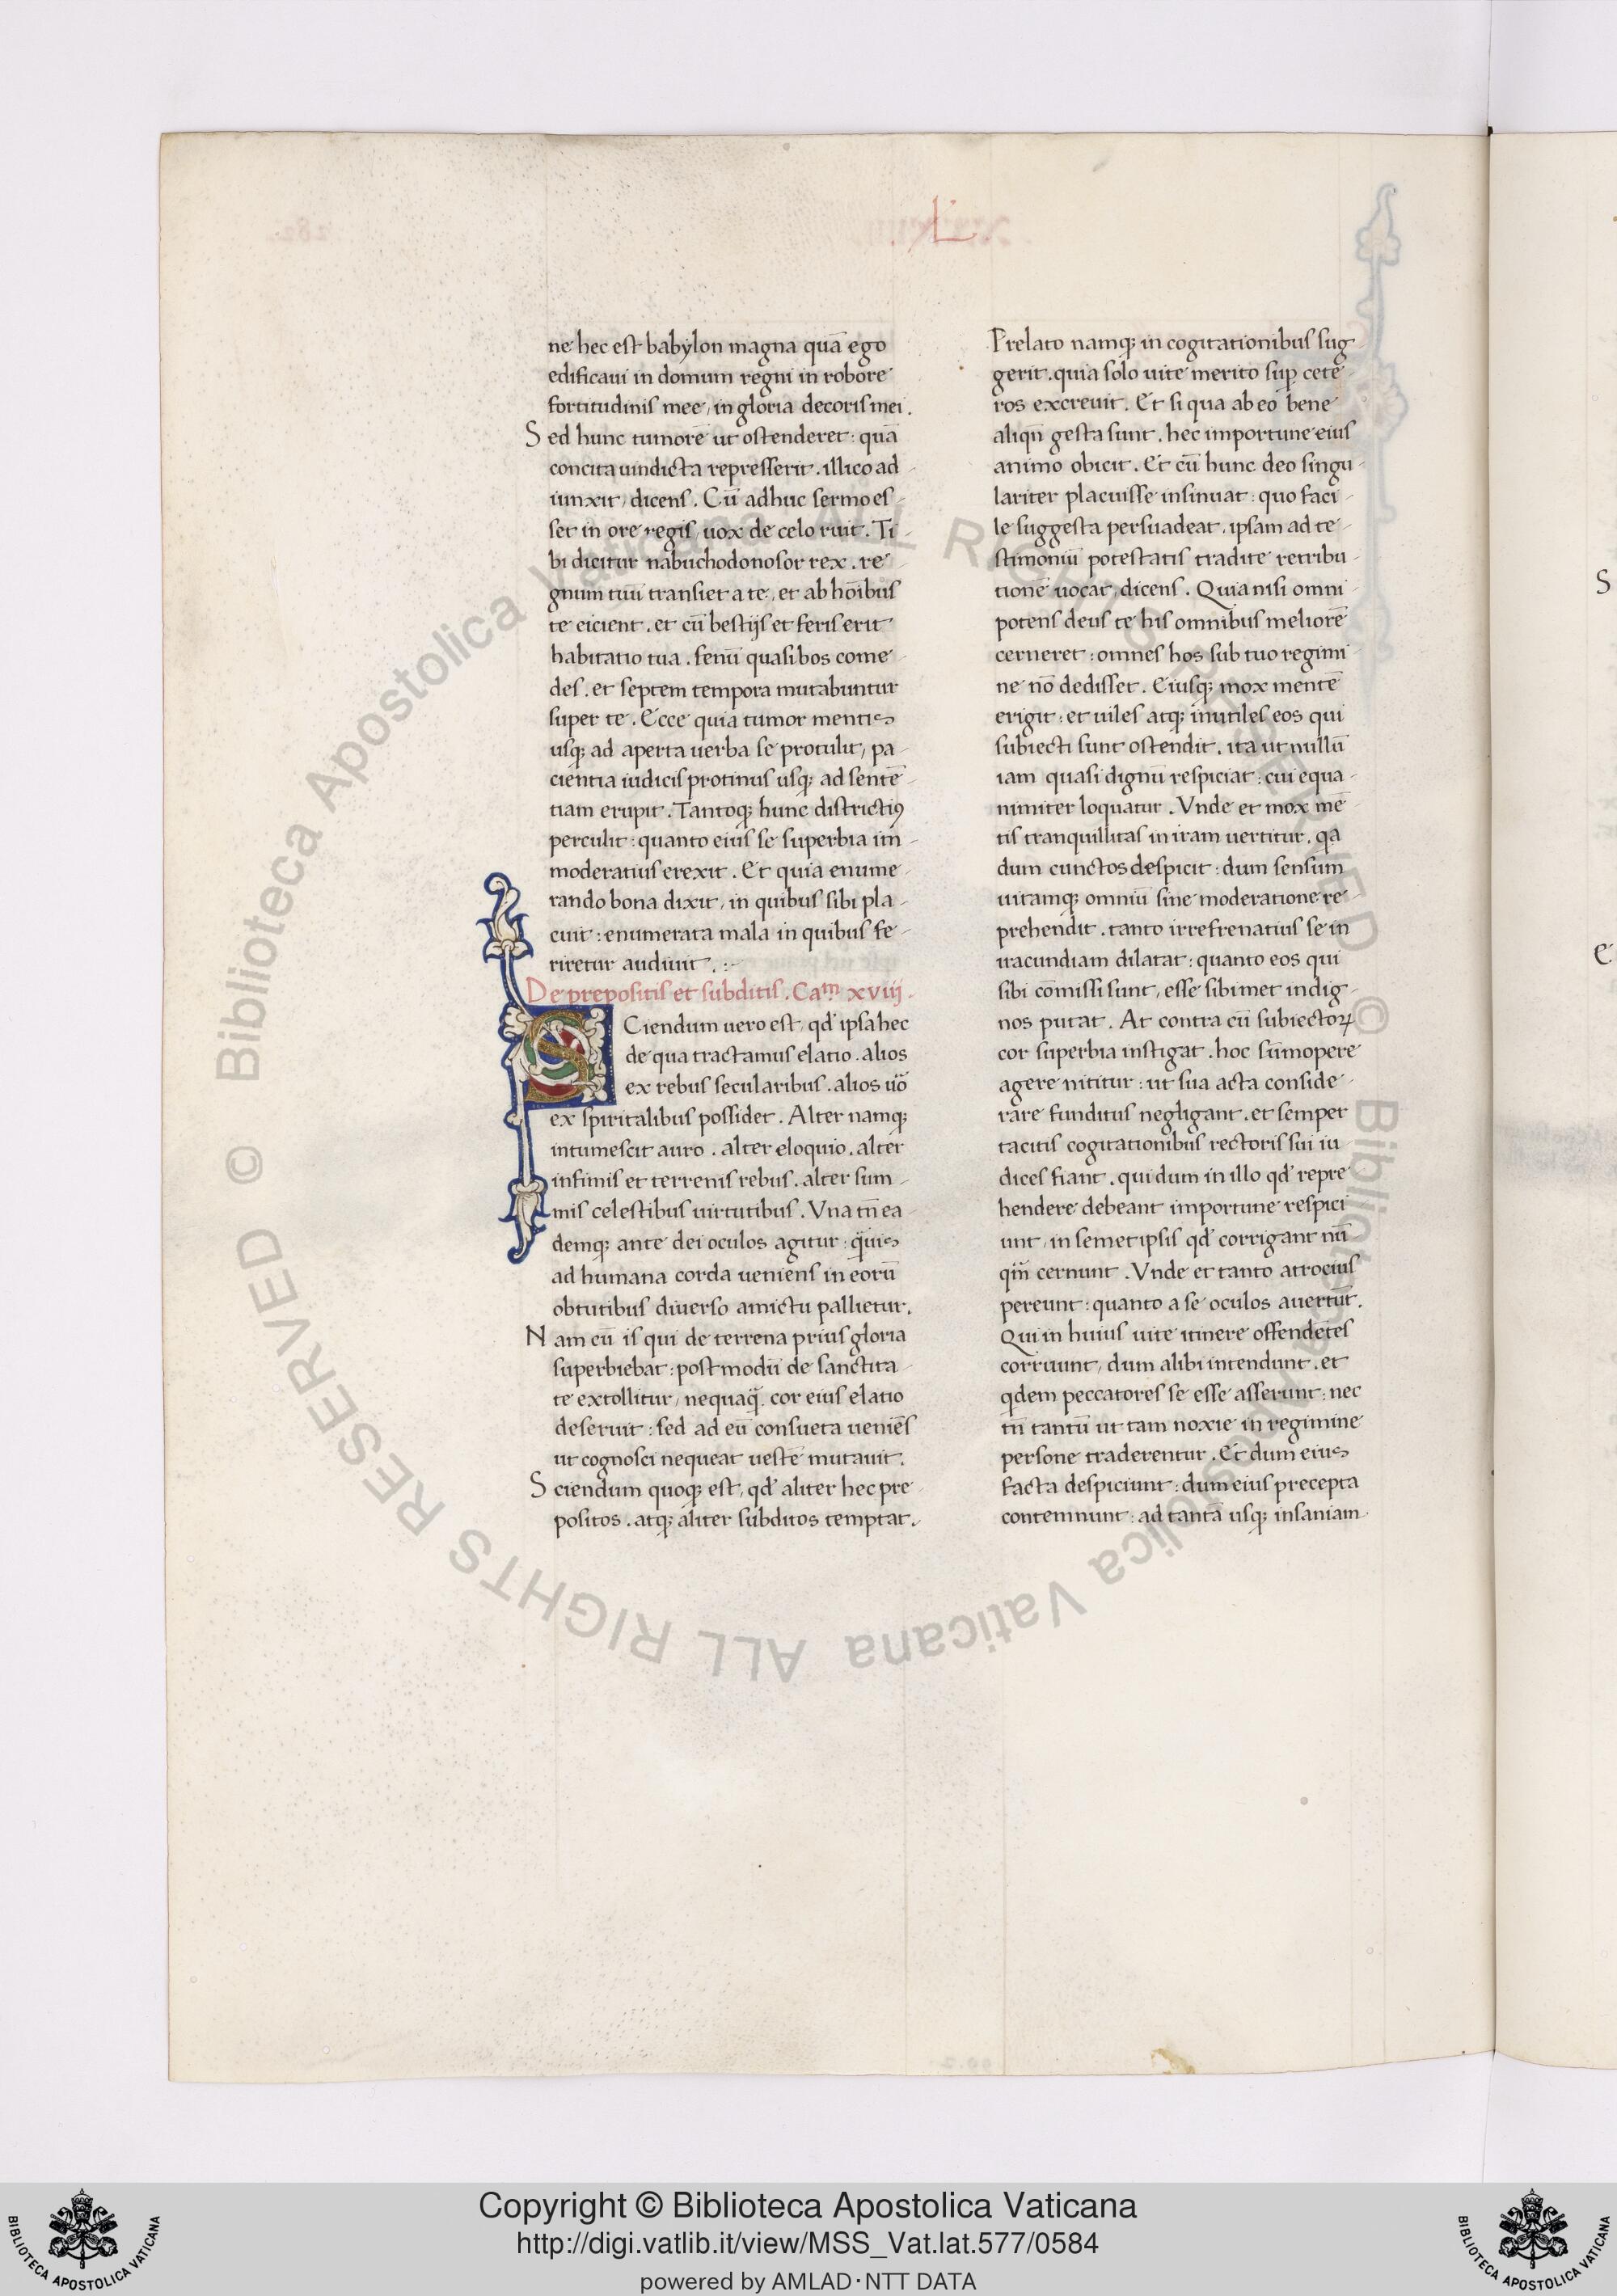 .L.
ne hec est babylon magna quā ego
edificaui in domum regni in robore
fortitudinis mee, in gloria decoris mei.
Sed hunc tumorē ut ostenderet: quā
concita uindicta represserit. illico ad-
iunxit, dicens. Cū adhuc sermo es-
set in ore regis, uox de celo ruit. Ti-
bi dicitur nabuchodonosor rex. re-
gnum tuū transiet a te, et ab hoībus
te eicient. et cū bestijs et feris erit
habitatio tua. fenū quasi bos come-
des. et septem tempora mutabuntur
super te. Ecce quia tumor mentis
usq; ad aperta uerba se protulit, pa-
cientia iudicis protinus usq; ad sentē-
tiam erupit. Tantoq; hunc districtiꝰ
perculit: quanto eius se superbia im-
moderatius erexit. Et quia enume-
rando bona dixit, in quibus sibi pla-
cuit: enumerata mala in quibus fe-
riretur audiuit. :-
De prepositis et subditis. Caᵐ xviij.
SCiendum uero est, qđ ipsa hec
de qua tractamus elatio. alios
ex rebus secularibus. alios uō
ex spiritalibus possidet. Alter namq;
intumescit auro. alter eloquio. alter
infimis et terrenis rebus. alter sum-
mis celestibus uirtutibus. Vna tn̄ ea-
demq; ante dei oculos agitur: q̄uis
ad humana corda ueniens in eorū
obtutibus diuerso amictu pallietur.
Nam cū is qui de terrena prius gloria
superbiebat: postmodū de sanctita-
te extollitur, nequaq̄ cor eius elatio
deseruit: sed ad eū consueta ueniēs
ut cognosci nequeat uestē mutauit.
Sciendum quoq; est, qđ aliter hec pre-
positos. atq; aliter subditos temptat.
Prelato namq; in cogitationibus sug-
gerit. quia solo uite merito suꝑ cete-
ros excreuit. Et si qua ab eo bene
aliqn̄ gesta sunt. hec importune eius
animo obicit. Et cū hunc deo singu-
lariter placuisse insinuat: quo faci-
le suggesta persuadeat. ipsam ad te-
stimoniū potestatis tradite retribu-
tionē uocat, dicens. Quia nisi omni-
potens deus te his omnibus meliorē
cerneret: omnes hos sub tuo regimi-
ne nō dedisset. Eiusq; mox mentē
erigit: et uiles atq; inutiles eos qui
subiecti sunt ostendit. ita ut nullū
iam quasi dignū respiciat: cui equa-
nimiter loquatur. Vnde et mox mē-
tis tranquillitas in iram uertitur. qa
dum cunctos despicit: dum sensum
uitamq; omniū sine moderatione re-
prehendit. tanto irrefrenatius se in
iracundiam dilatat: quanto eos qui
sibi cōmissi sunt, esse sibimet indig-
nos putat. At contra cū subiectoꝝ
cor superbia instigat. hoc sūmopere
agere nititur: ut sua acta conside-
rare funditus negligant. et semper
tacitis cogitationibus rectoris sui iu-
dices fiant. qui dum in illo qđ repre-
hendere debeant importune respici-
unt, in semetipsis qđ corrigant nū
qm̄ cernunt. Vnde et tanto atrocius
pereunt: quanto a se oculos auertūt.
Qui in huius uite itinere offendētes
corruunt, dum alibi intendunt. et
qdem peccatores se esse asserunt: nec
tn̄ tantū ut tam noxie in regimine
persone traderentur. Et dum eius
facta despiciunt: dum eius precepta
contemnunt: ad tantā usq; insaniam
S
E
© Biblioteca Apostolica Vaticana ALL RIGHTS RESERVED © Biblioteca Apostolica Vaticana ALL RIGHTS RESERVED
Copyright © Biblioteca Apostolica Vaticana
http://digi.vatlib.it/view/MSS_Vat.lat.577/0584
powered by AMLAD·NTT DATA
BIBLIOTECA APOSTOLICA VATICANA
BIBLIOTECA APOSTOLICA VATICANA